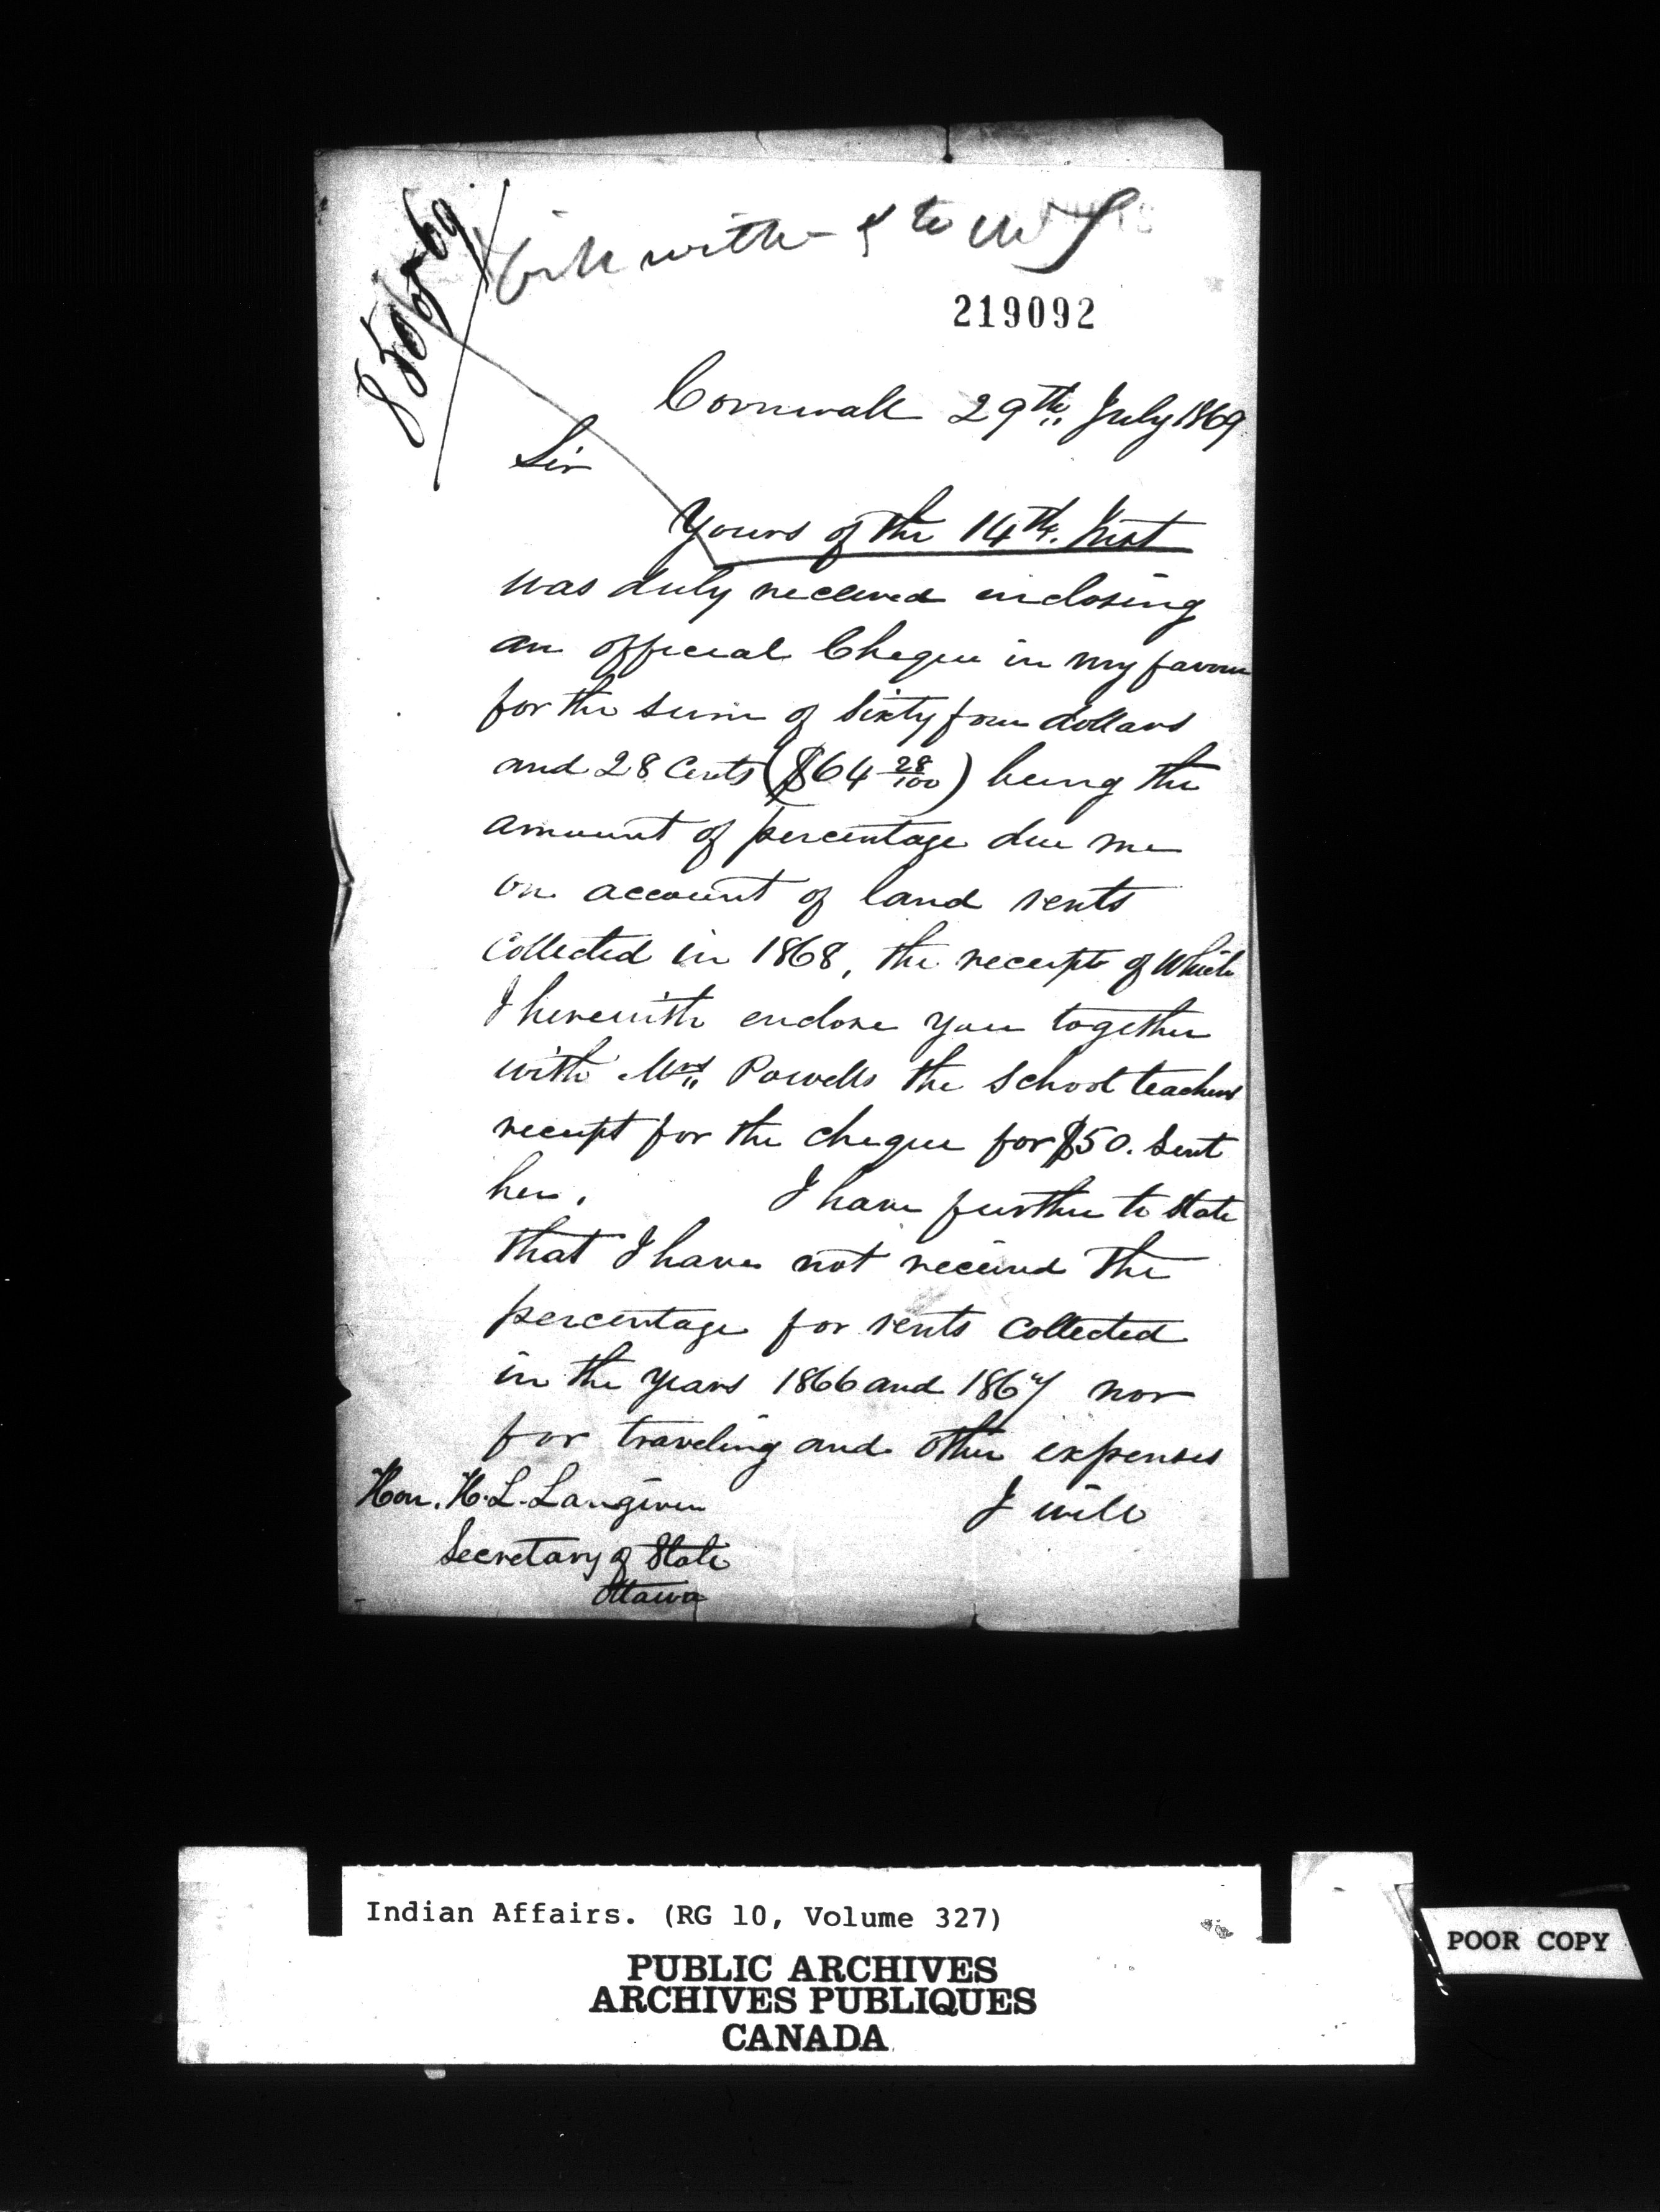 with to
219092
Cornwall 29th July 1869
Sir
Yours of the 14th. Inst
was duly received inclosing
an official Cheque in my favour
for the sum of Sixty four dollars
and 28 Cents ($64 28/100) being the
amount of percentage due me
on account of land rents
Collected in 1868, the receipt of Which
I herewith enclose you together
with Mrs Powells the School teachers
receipt for the cheque for $50. Sent
her. I have further to State
that I have not received the
percentage for rents Collected
in the years 1866 and 1867 nor
for traveling and other expenses
I will
Hon. H. L. Langevin
Secretary of State
Ottawa
Indian Affairs. (RG 10, Volume 327)
PUBLIC ARCHIVES
ARCHIVES PUBLIQUES
CANADA
POOR COPY